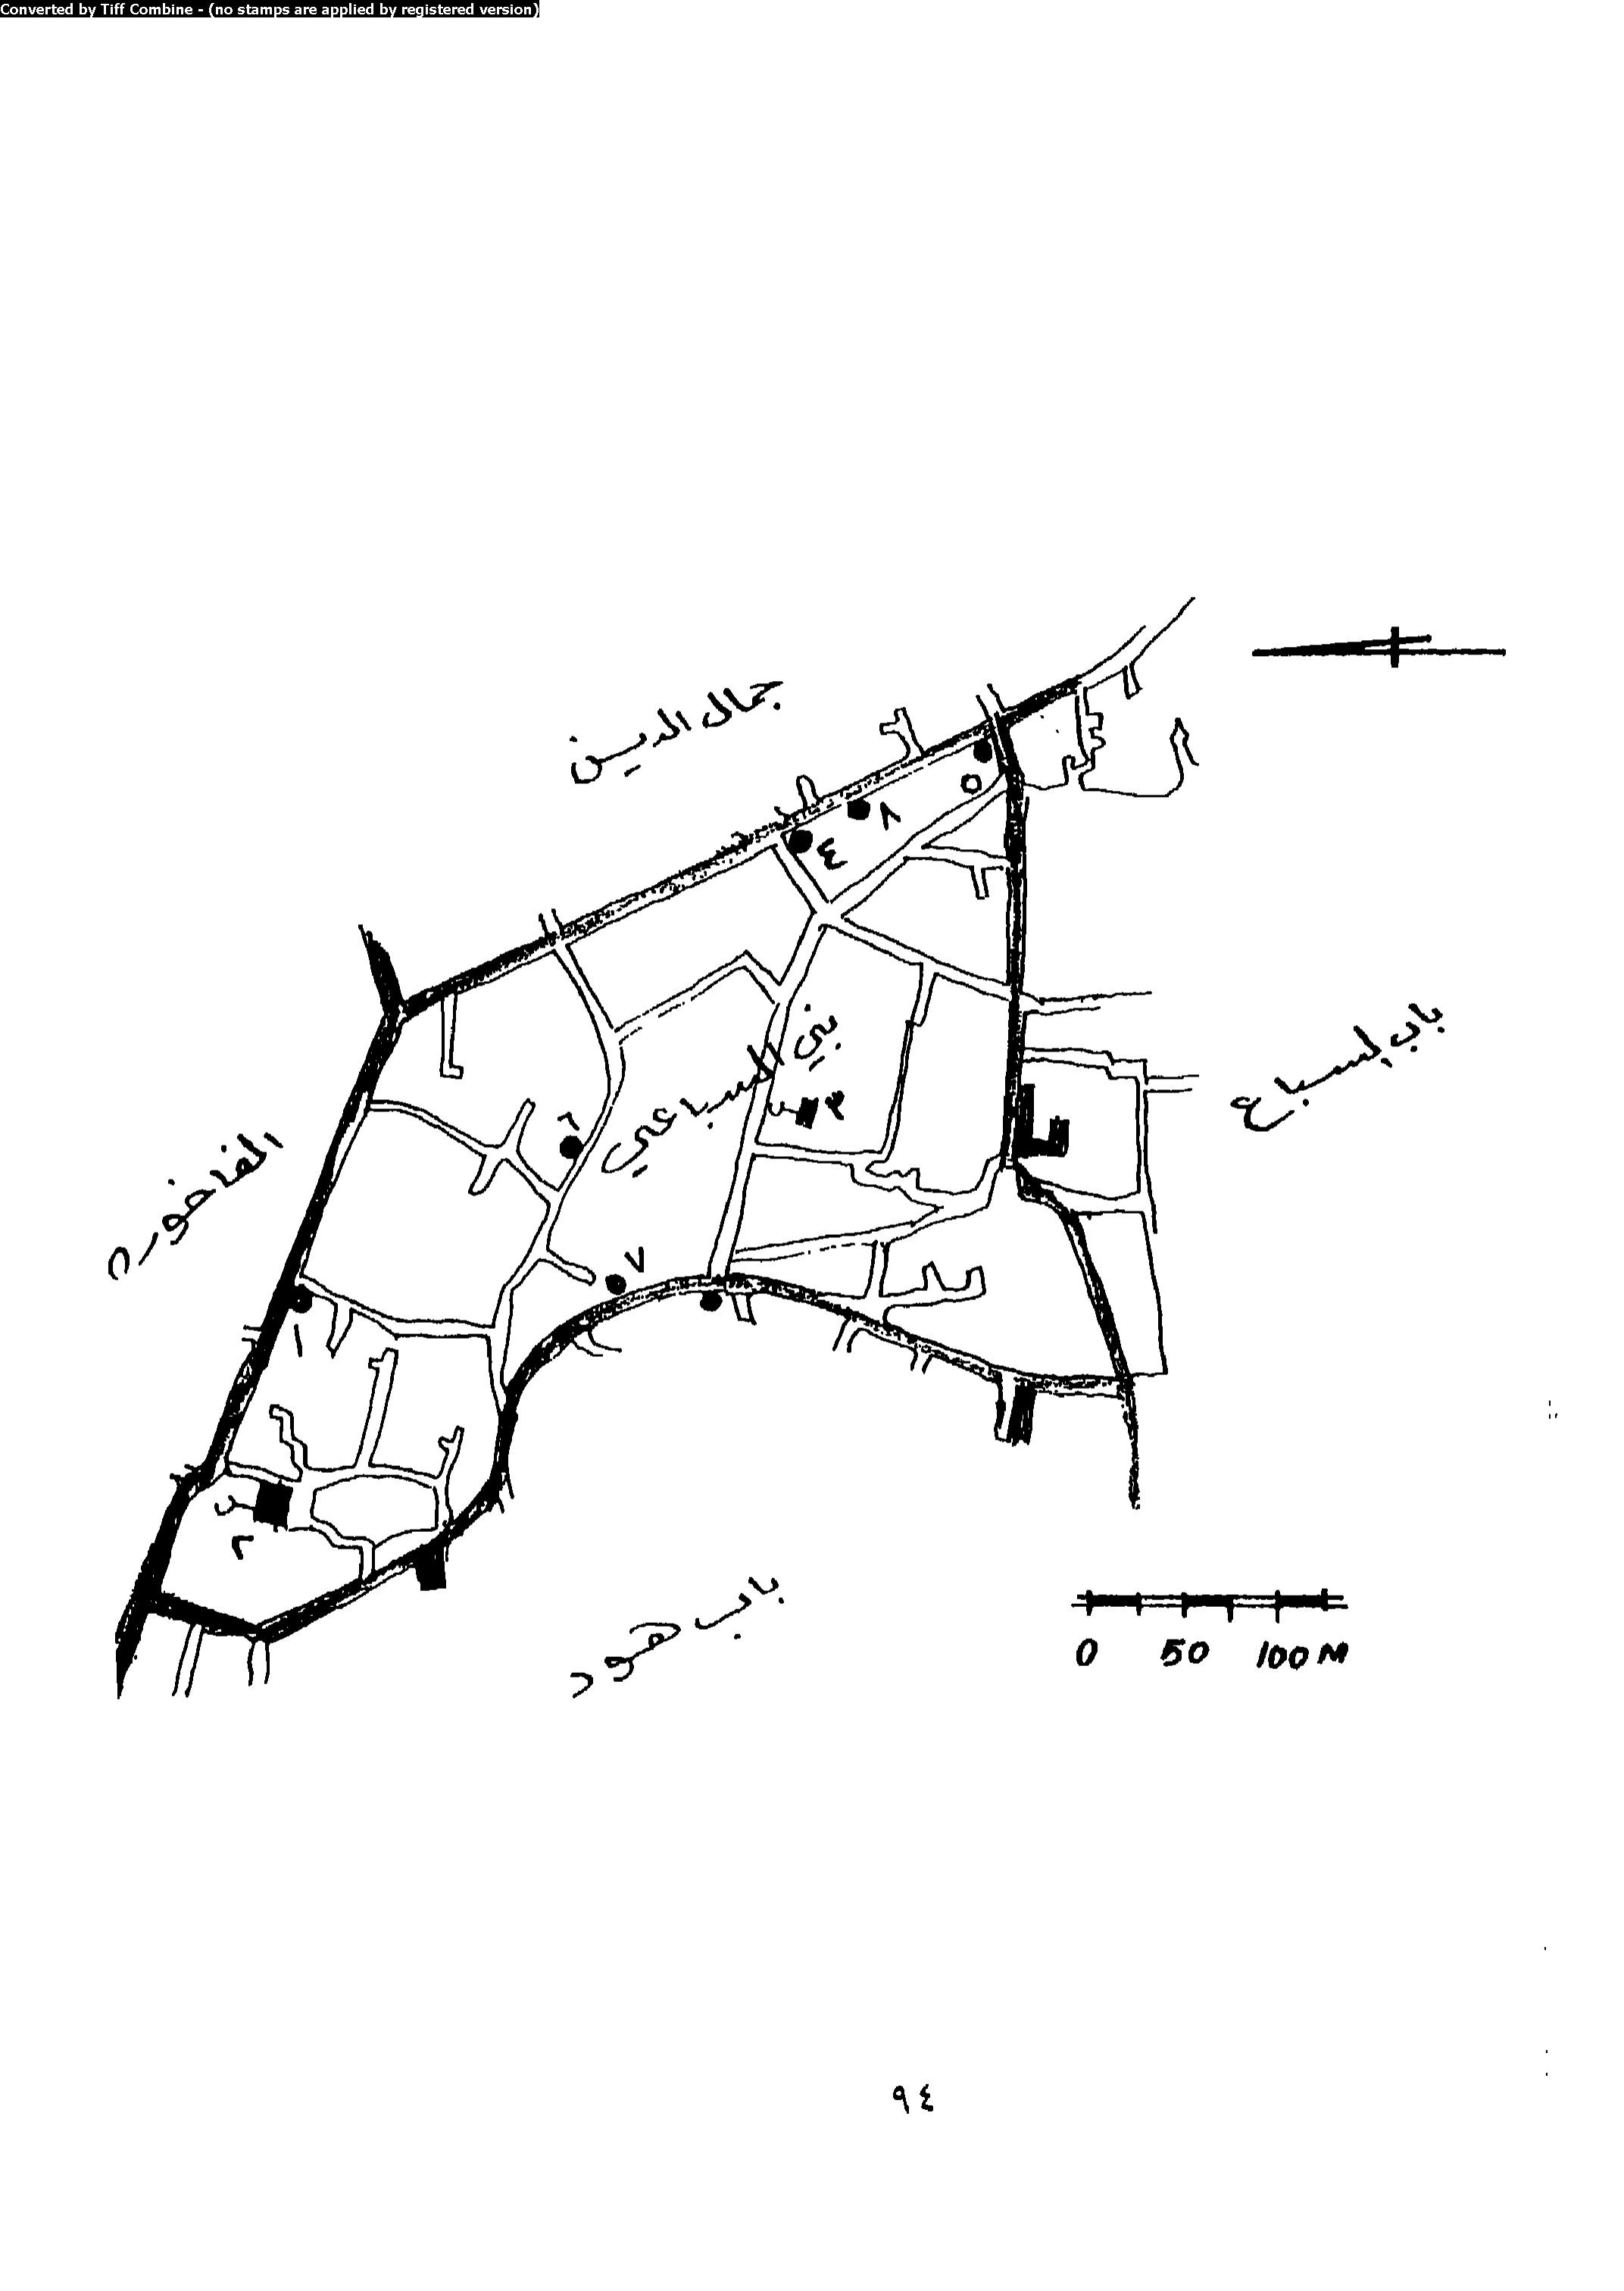 Converted by Tiff Combine - (no stamps are applied by registered version)
جمال الدين
٥
٨
٤
باب السباع
بني السباعي
٣
٦
الفاخوره
٧
١
٢
باب هود
0 50 100 M
٩٤